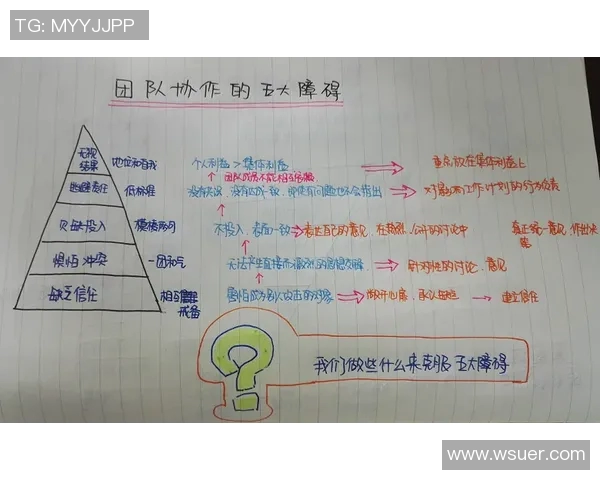 TG: MYYJJPP
团队协作的五大障碍
无视结果 地位和自我 个人利益 > 集体利益 重点放在集体利益上
团队成员不能相互
逃避责任 低标准 没有 没有 一致, 即使有问题也不会指出 对影响工作计划的行为负责
欠缺投入 模棱两可 不投入, 表面一致 表达自己的意见, 在 公开的讨论中 真正统一意见, 作出决策
惧怕冲突 一团和气 无法产生直接而激烈的思想交锋 针对性的讨论, 意见
缺乏信任 相互 戒备 害怕成为别人攻击的对象 敞开心扉, 承认 建立信任
我们做些什么来克服五大障碍
www.wsuer.com